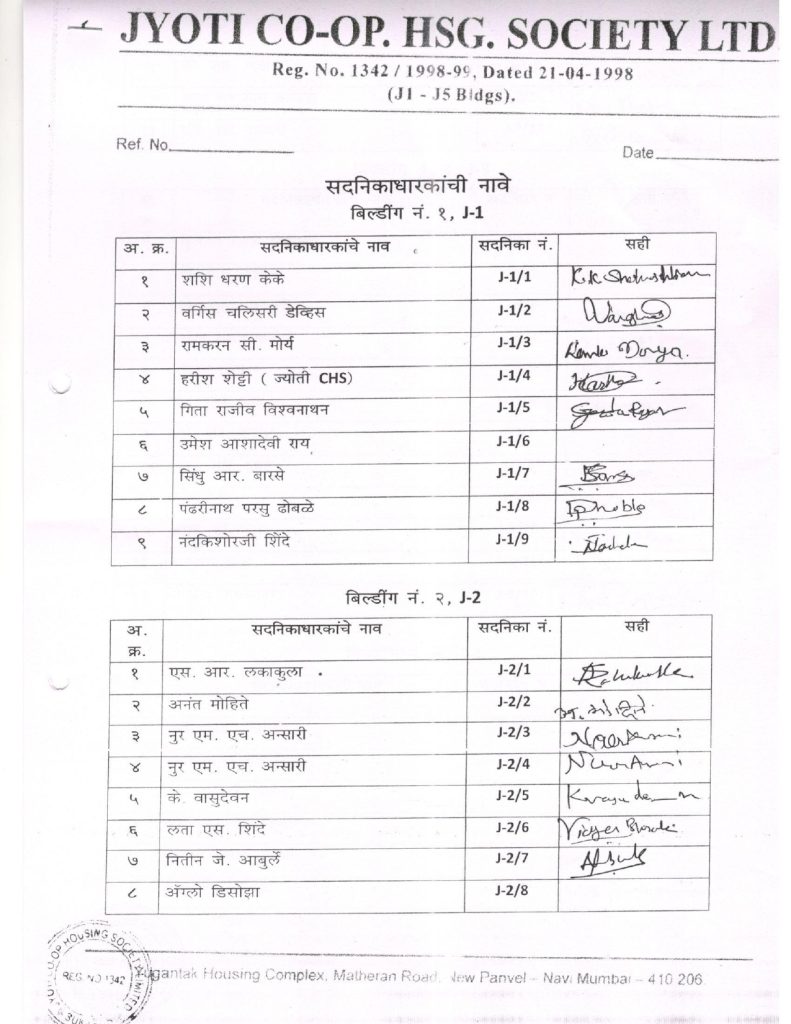 JYOTI CO-OP. HSG. SOCIETY LTD
Reg. No. 1342 / 1998-99, Dated 21-04-1998
(J1 - J5 Bldgs).
Ref. No.
Date
सदनिकाधारकांची नावे
बिल्डींग नं. १, J-1
अ. क्र. सदनिकाधारकांचे नाव सदनिका नं. सही
१ शशि धरण केके J-1/1
२ वर्गिस चलिसरी डेव्हिस J-1/2
३ रामकरन सी. मोर्य J-1/3
४ हरीश शेट्टी ( ज्योती CHS) J-1/4
५ गिता राजीव विश्वनाथन J-1/5
६ उमेश आशादेवी राय J-1/6
७ सिंधु आर. बारसे J-1/7
८ पंढरीनाथ परसु ढोबळे J-1/8
९ नंदकिशोरजी शिंदे J-1/9
बिल्डींग नं. २, J-2
अ. क्र. सदनिकाधारकांचे नाव सदनिका नं. सही
१ एस. आर. लकाकुला J-2/1
२ अनंत मोहिते J-2/2 अ. मोहिते
३ नुर एम. एच. अन्सारी J-2/3
४ नुर एम. एच. अन्सारी J-2/4
५ के. वासुदेवन J-2/5
६ लता एस. शिंदे J-2/6
७ नितीन जे. आबुर्ले J-2/7
८ अ‍ॅग्लो डिसोझा J-2/8
REG NO 1342
Yugantak Housing Complex, Matheran Road, New Panvel – Navi Mumbai – 410 206.